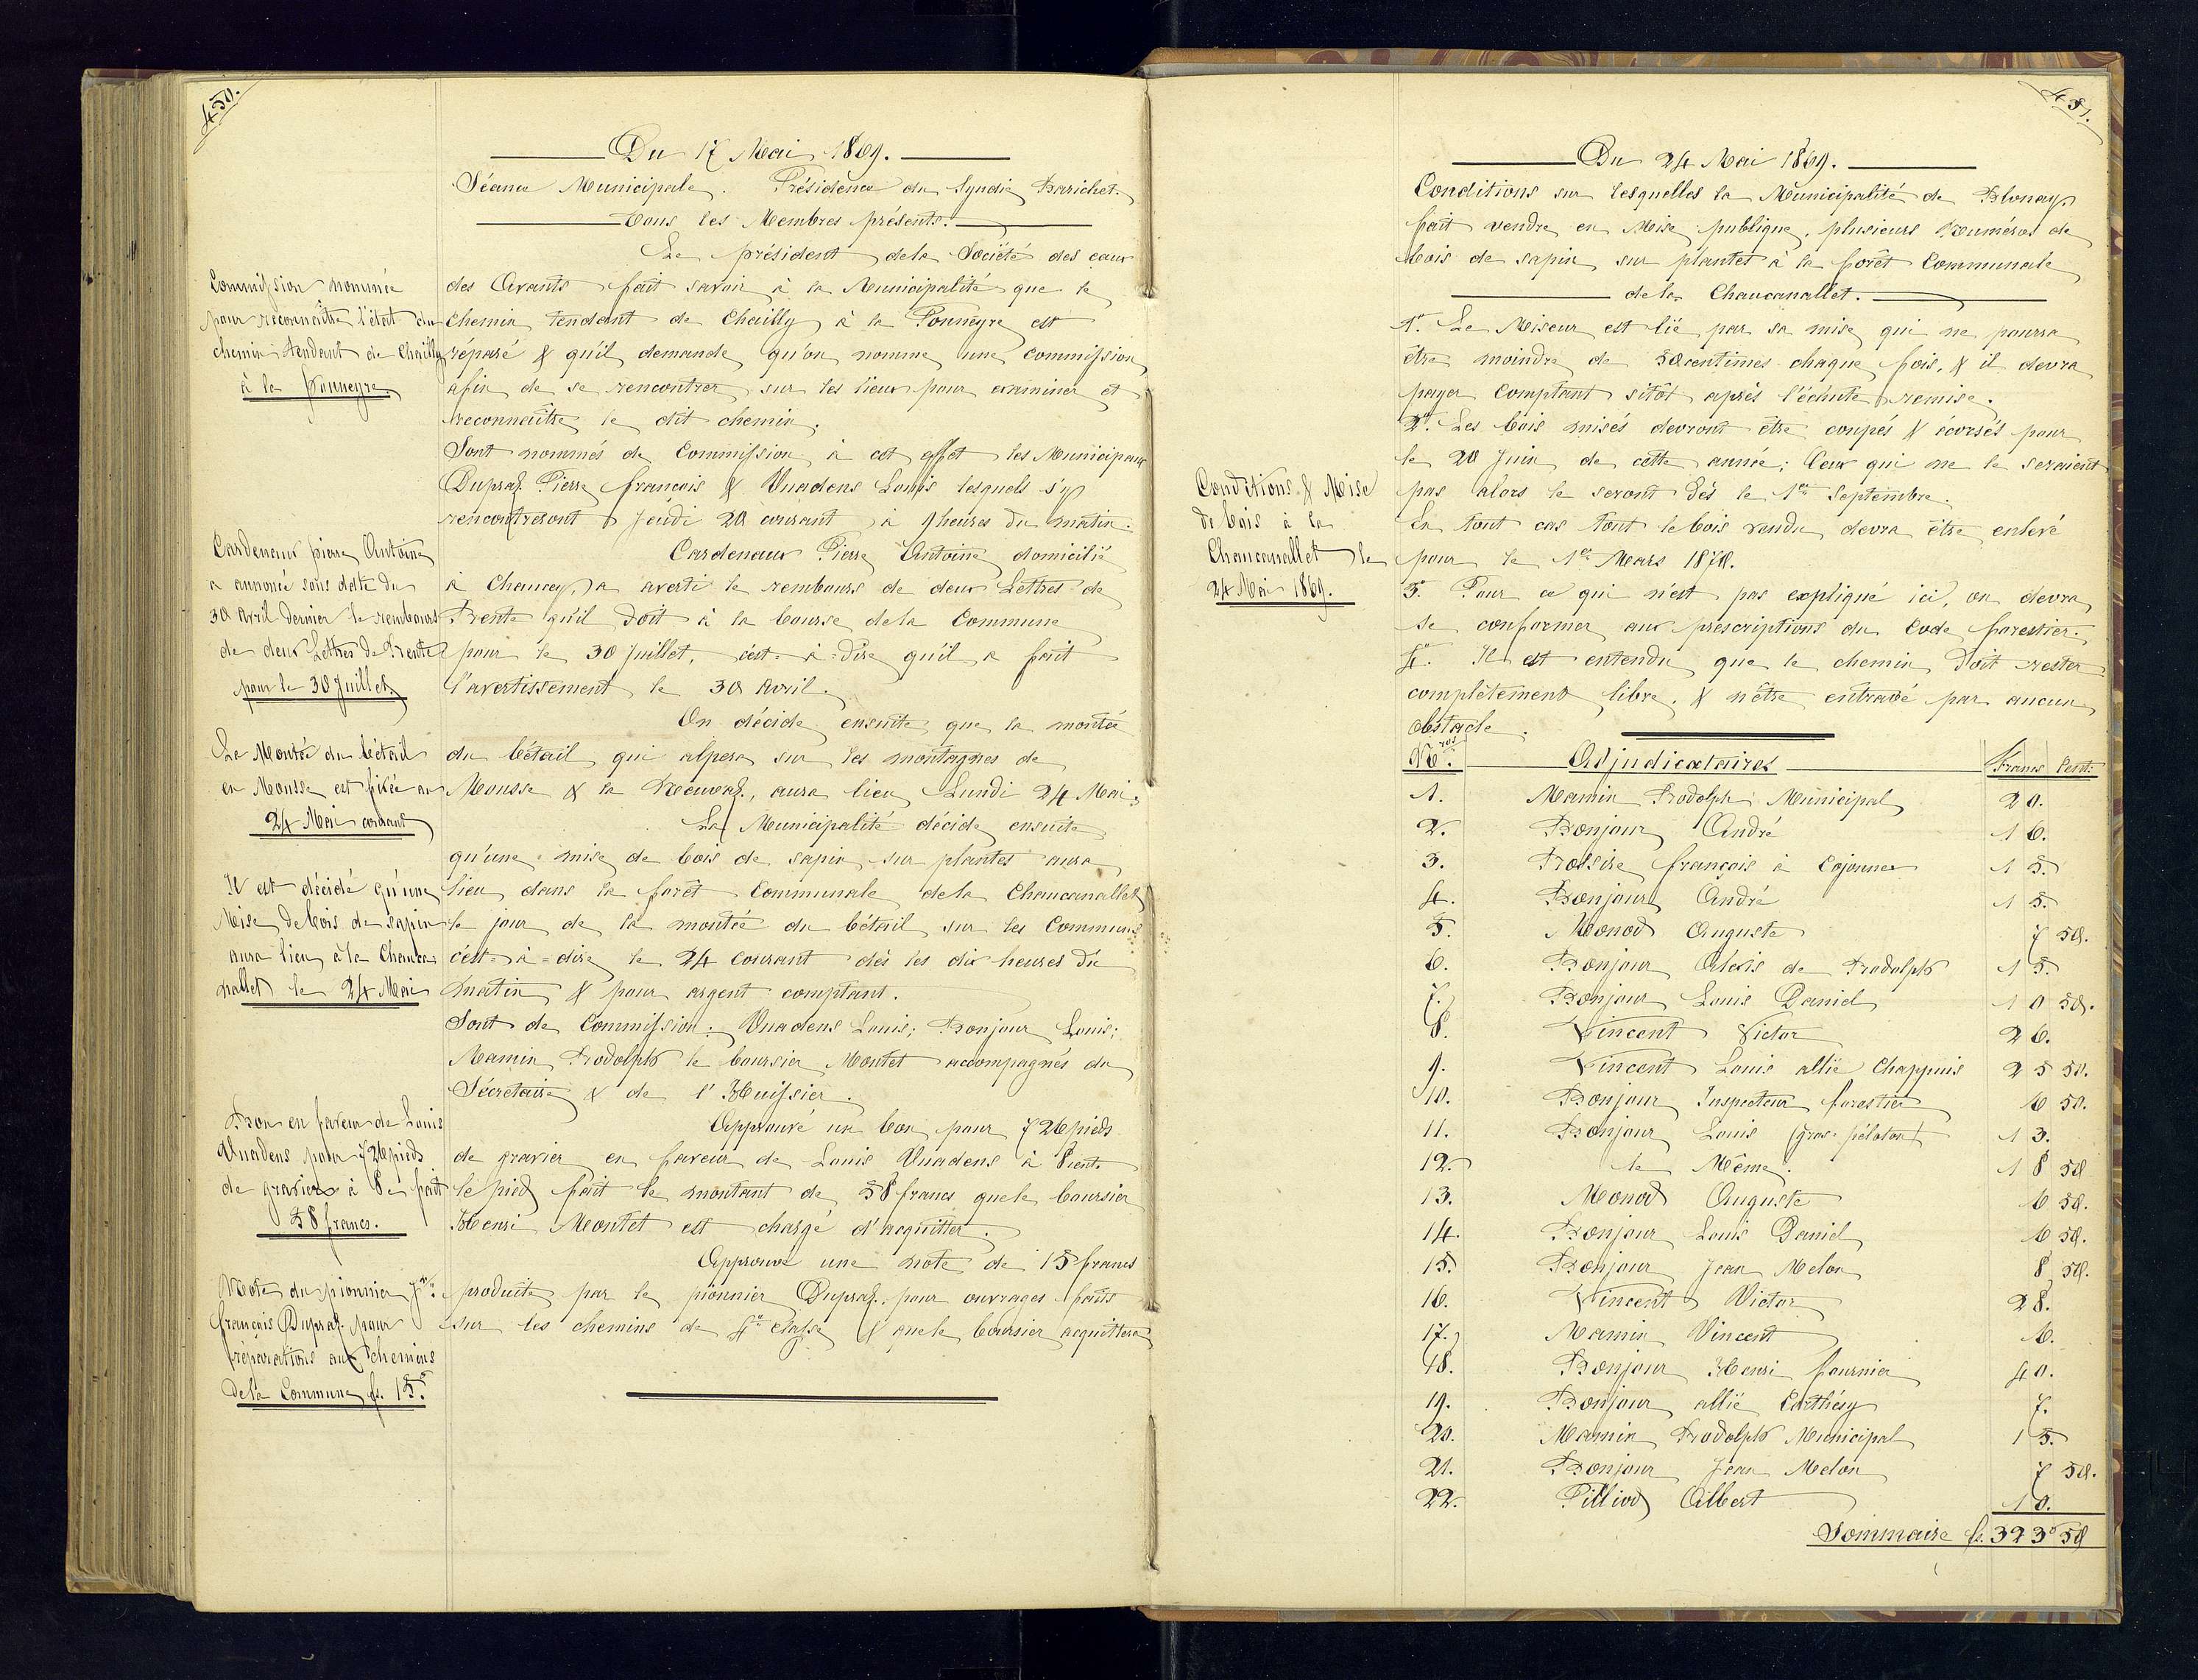 450.
Du 17 Mai 1869.
Séance Municipale. Présidence du Syndic Barichet.
Tous les Membres présents.
Commission nommée
pour reconnaître l'état du
chemin tendant de Chailly
à la Fonneyre
Le président de la Société des eaux
des Avants fait savoir à la Municipalité que le
chemin tendant de Chailly à la Fonneyre est
réparé & qu'il demande qu'on nomme une commission
afin de se rencontrer sur les lieux pour examiner et
reconnaître le dit chemin.
Sont nommés de Commission à cet effet les Municipaux
Dupraz Pierre françois & Vuadens Louis lesquels s'y
rencontreront Jeudi 20 courant à 9 heures du matin.
Cardenaux pierre Antoine
a annoncé sous date du
30 Avril dernier le rembours
de deux Lettres de Rente
pour le 30 Juillet
Cardenaux Pierre Antoine domicilié
à Chancey, a averti le rembours de deux Lettres de
Rente qu'il doit à la bourse de la Commune
pour le 30 Juillet, c'est-à-dire qu'il a fait
l'avertissement le 30 Avril.
La Montée du bétail
en Mousse est fixée au
24 Mai courant
On décide ensuite que la montée
du bétail qui alpera sur les montagnes de
Mousse & la Neuvaz, aura lieu Lundi 24 Mai,
Il est décidé qu'une
Mise de bois de sapin
aura lieu à la Chauca
nallet le 24 Mai
La Municipalité décide ensuite
qu'une mise de bois de sapin sur plantes aura
lieu dans la forêt Communale de la Chaucanallet
le jour de la montée du bétail sur les Communs
c'est-à-dire le 24 Courant dès les dix heures du
matin & pour argent comptant.
Sont de Commission: Vuadens Louis; Bonjour Louis;
Mamin Rodolph le boursier Montet accompagnés du
Secrétaire & de l'Huissier.
Bon en faveur de Louis
Vuadens pour 726 pieds
de gravier à 8 cs fait
58 francs.
Approuvé un bon pour 726 pieds
de gravier en faveur de Louis Vuadens à 8 cent.
le pied fait le montant de 58 francs que le boursier
Henri Montet est chargé d'acquitter.
Note du pionnier Jn.
françois Dupraz pour
réparations aux chemins
de la Commune fs. 15.
Approuvé une note de 15 francs
produite par le pionnier Dupraz pour ouvrages faits
sur les chemins de 4me classe & que le boursier acquittera
451.
Du 24 Mai 1869.
Conditions sur lesquelles la Municipalité de Blonay
fait vendre en Mise publique, plusieurs Numéros de
bois de sapin sur plantes à la forêt Communale
de la Chaucanallet.
Conditions & Mise
de bois à la
Chaucanallet le
24 Mai 1869.
1o. Le Miseur est lié par sa mise qui ne pourra
être moindre de 50 centimes chaque fois, & il devra
payer Comptant sitôt après l'échute remise.
2o. Les bois misés devront être coupés & écorsés pour
le 20 Juin de cette année; Ceux qui ne le seraient
pas alors le seront dès le 1er Septembre.
En tout cas tout le bois vendu devra être enlevé
pour le 1er Mars 1870.
3o. Pour ce qui n'est pas expliqué ici, on devra
se conformer aux prescriptions du Code forestier.
4o. Il est entendu que le chemin doit rester
complètement libre, & n'être entravé par aucun
obstacle.
Nos. Adjudicataires Francs Cent.
1. Mamin Rodolph Municipal 20.
2. Bonjour André 16.
3. Rossire françois à Cojonnex 15.
4. Bonjour André 15.
5. Monod Auguste 7 50.
6. Bonjour Alexis de Rodolph 15.
7. Bonjour Louis Daniel 10 50.
8. Vincent Victor 26.
9. Vincent Louis allié Chappuis 25 50.
10. Bonjour Inspecteur forestier 6 50.
11. Bonjour Louis (gros péloton) 13.
12. le Même. 18 50
13. Monod Auguste 6 50.
14. Bonjour Louis Daniel 6 50.
15. Bonjour Jean Melon 8 50.
16. Vincent Victor 28.
17. Mamin Vincent 6.
18. Bonjour Henri fournier 40.
19. Bonjour allié Corthésy 7.
20. Mamin Rodolph Municipal 15.
21. Bonjour Jean Melon 7 50.
22. Pilliod Albert 10.
Sommaire fs. 323 50